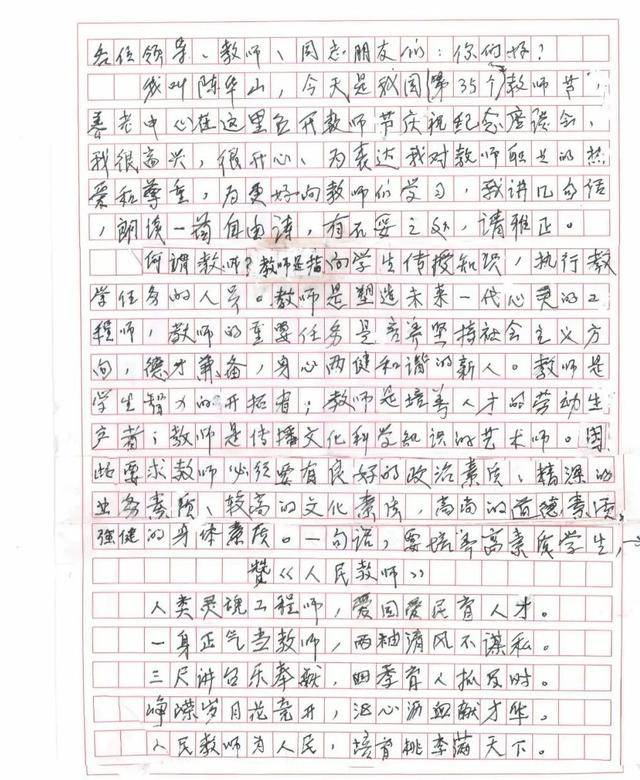 各位领导、教师、同志朋友们：你们好？
我叫陈华山，今天是我国第35个教师节，
养老中心在这里召开教师节庆祝纪念座谈会，
我很高兴，很开心、为表达我对教师职业的热
爱和尊重，为更好向教师们学习，我讲几句话
，朗读一首自由诗，有不妥之处，请雅正。
何谓教师？教师是指向学生传授知识，执行教
学任务的人员。教师是塑造未来一代心灵的工
程师，教师的重要任务是培养坚持社会主义方
向，德才兼备，身心两健和谐的新人。教师是
学生智力的开拓者；教师是培养人才的劳动生
产者；教师是传播文化科学知识的艺术师。因
此要求教师必须要有良好的政治素质、精深的
业务素质、较高的文化素质，高尚的道德素质，
强健的身体素质。一句话，要培养高素质学生，→
赞《人民教师》
人类灵魂工程师，爱国爱民育人才。
一身正气当教师，两袖清风不谋私。
三尺讲台乐奉献，四季育人拟及时。
峥嵘岁月花亮开，沤心沥血献才华。
人民教师为人民，培育桃李满天下。